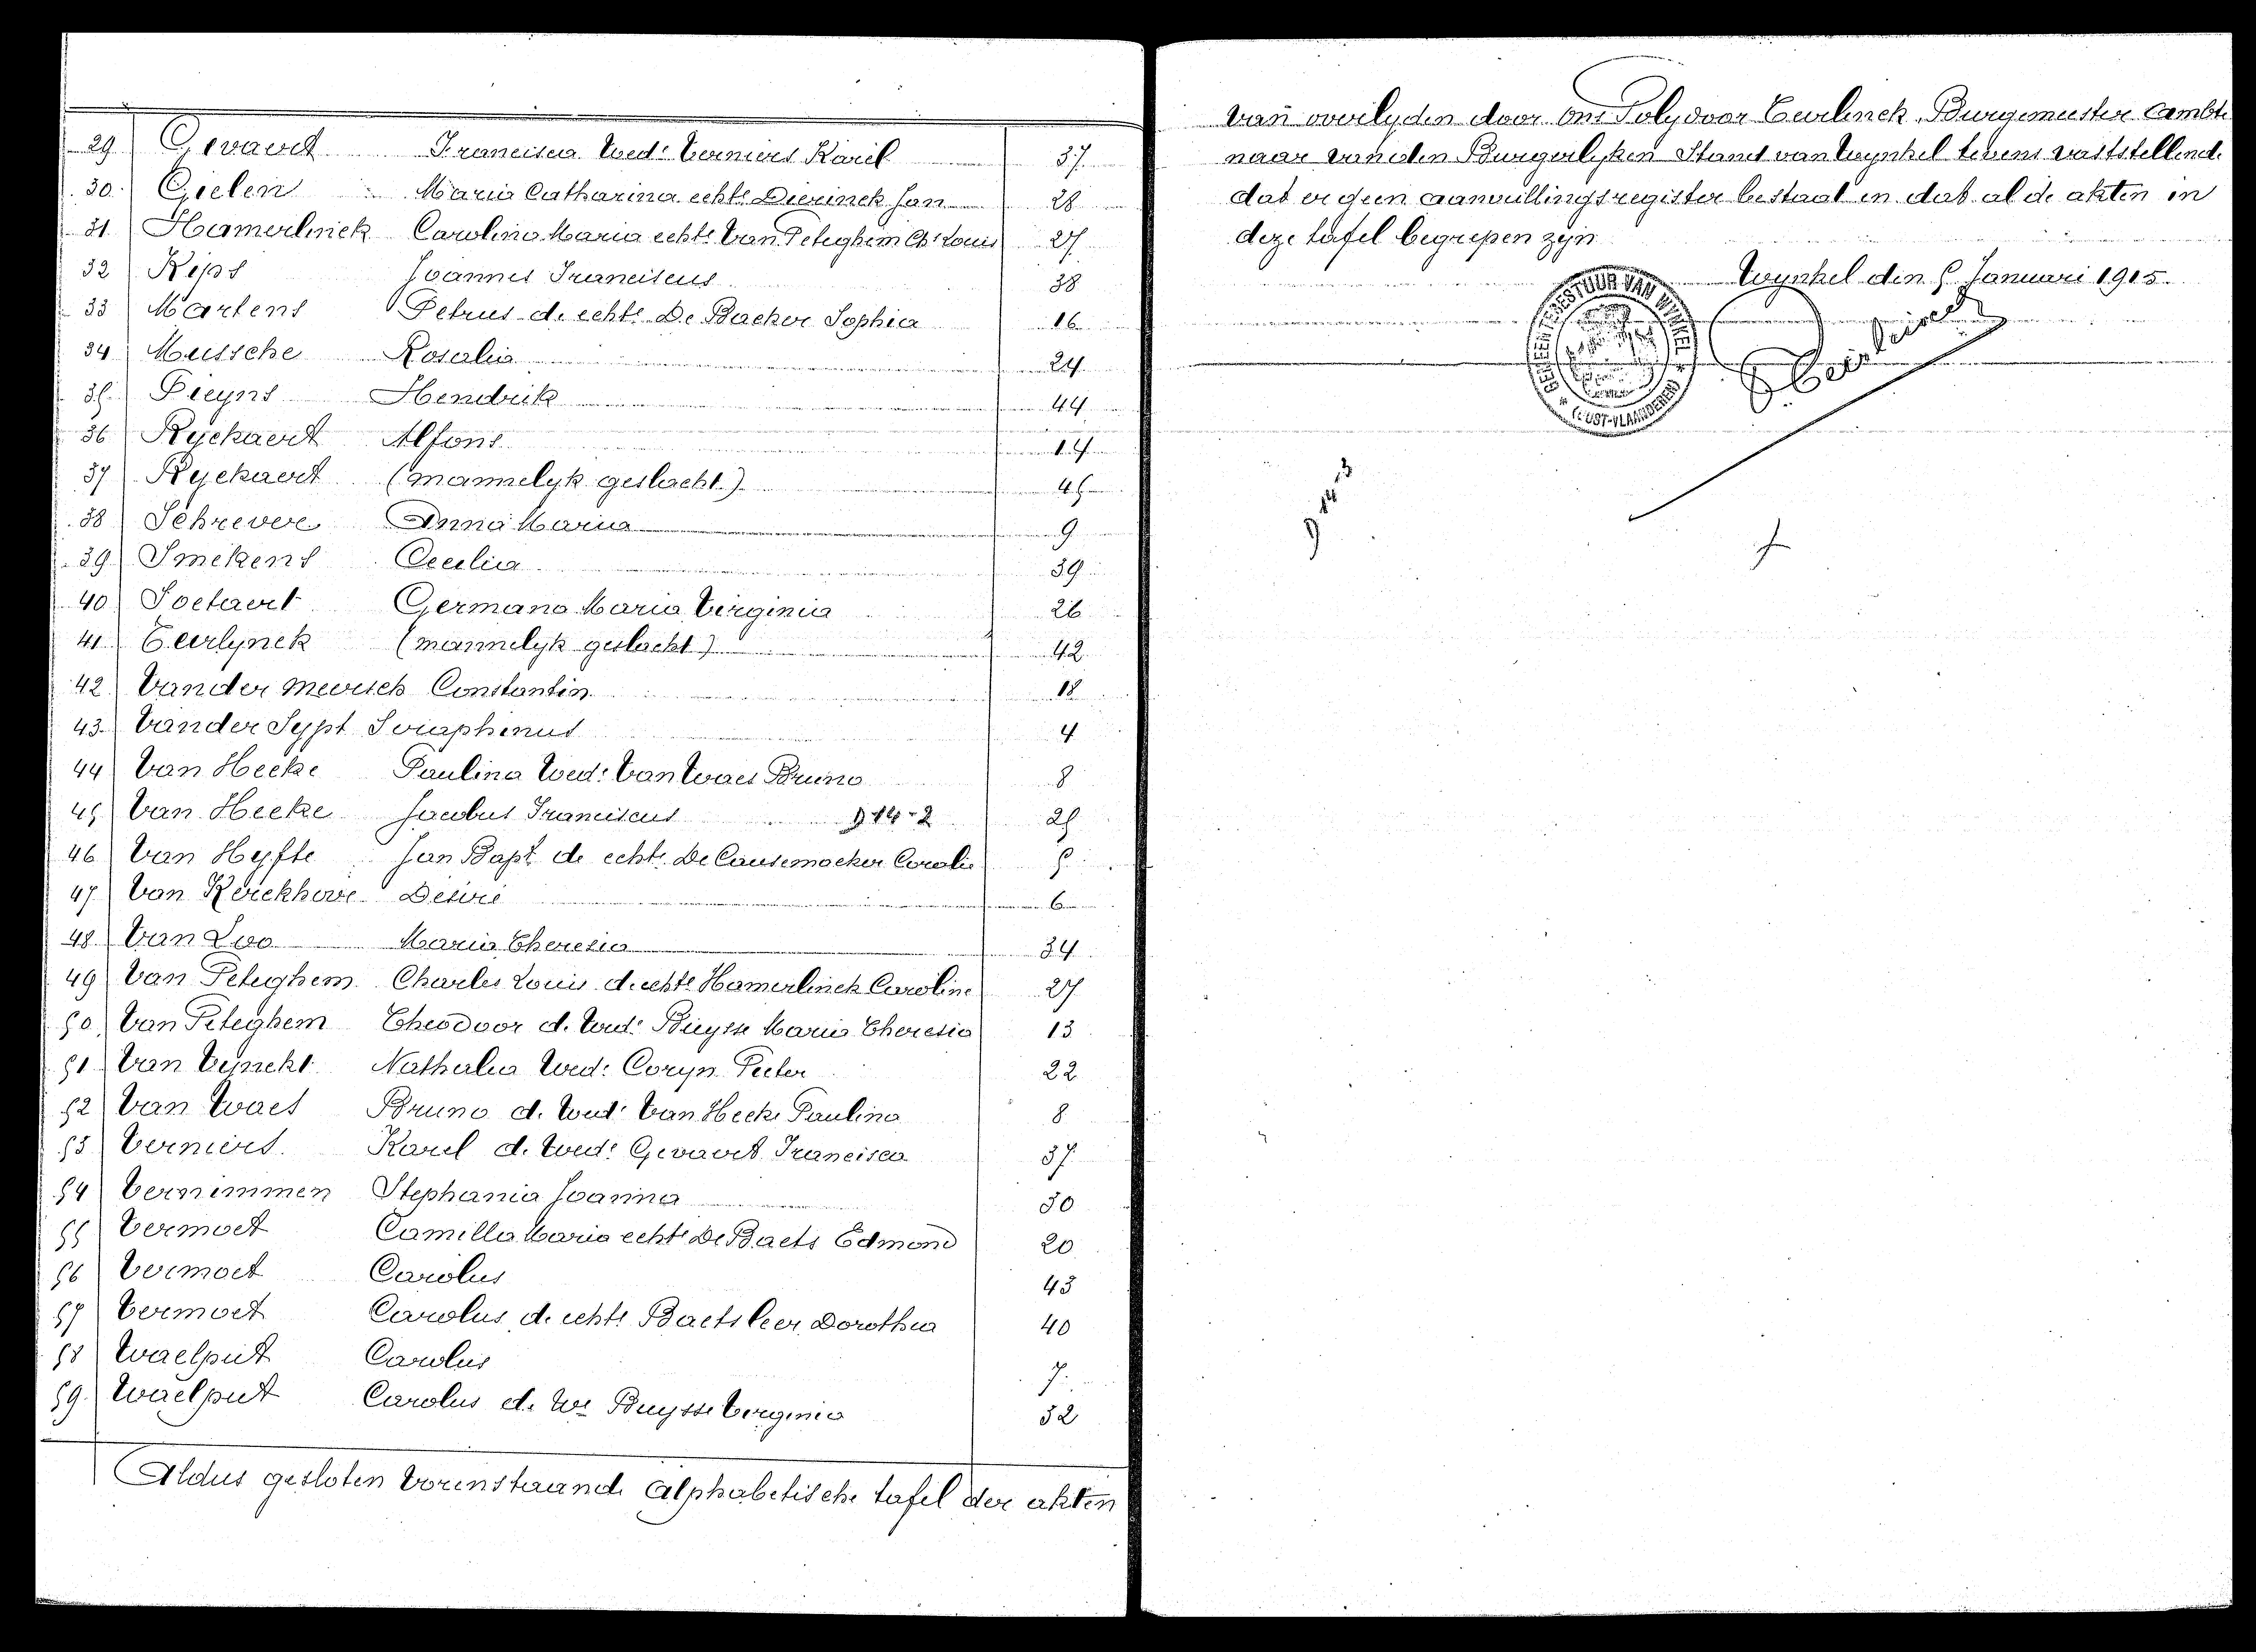 29 Gevaert Francisca Wed.e Verniers Karel 37
30 Gielen Maria Catharina echt.e Dierinck Jan 28
31 Hamerlinck Carolina Maria echt.e Van Peteghem Ch.s Louis 27
32 Kips Joannes Franciscus 38
33 Martens Petrus d. echt.e De Backer Sophia 16
34 Mussche Rosalia 24
35 Pieyns Hendrik 44
36 Ryckaert Alfons 14
37 Ryckaert (mannelyk geslacht.) 45
38 Schrevere Anna Maria 9
39 Smekens Cecilia 39
40 Soetaert Germana Maria Virginia 26
41 Teerlynck (mannelyk geslacht) 42
42 Vander Meersch Constantin 18
43 Vander Sypt Seraphinus 4
44 Van Hecke Paulina Wed.e Van Waes Bruno 8
45 Van Hecke Jacobus Franciscus 9 14-2 25
46 Van Hyfte Jan Bapt. de echt.e De Causemaeker Coralie 5
47 Van Kerckhove Desiré 6
48 Van Loo Maria Theresia 34
49 Van Peteghem Charles Louis d. echt.e Hamerlinck Caroline 27
50 Van Peteghem Theodoor d. Wed.r Buysse Maria Theresia 13
51 Van Vynckt Nathalia Wed.e Coryn Pieter 22
52 Van Waes Bruno d. Wed.r Van Hecke Paulina 8
53 Verniers Karel d. Wed.r Gevaert Francisca 37
54 Vernimmen Stephania Joanna 30
55 Vermoet Camilla Maria echt.e De Baets Edmond 20
56 Vermoet Carolus 43
57 Vermoet Carolus d. echt.e Baetsleer Dorothea 40
58 Waelput Carolus 7
59 Waelput Carolus d. We Buysse Virginia 32
Aldus gesloten vorenstaande alphabetische tafel der akten
van overlyden door ons Polydoor Teirlinck, Burgemeester ambte
naar van den Burgerlyken Stand van Wynkel tevens vaststellende
dat er geen aanvullingsregister bestaat en dat al de akten in
deze tafel begrepen zyn
Wynkel den 5 Januari 1915.
GEMEENTEBESTUUR VAN WYNKEL
(OOST-VLAANDEREN)